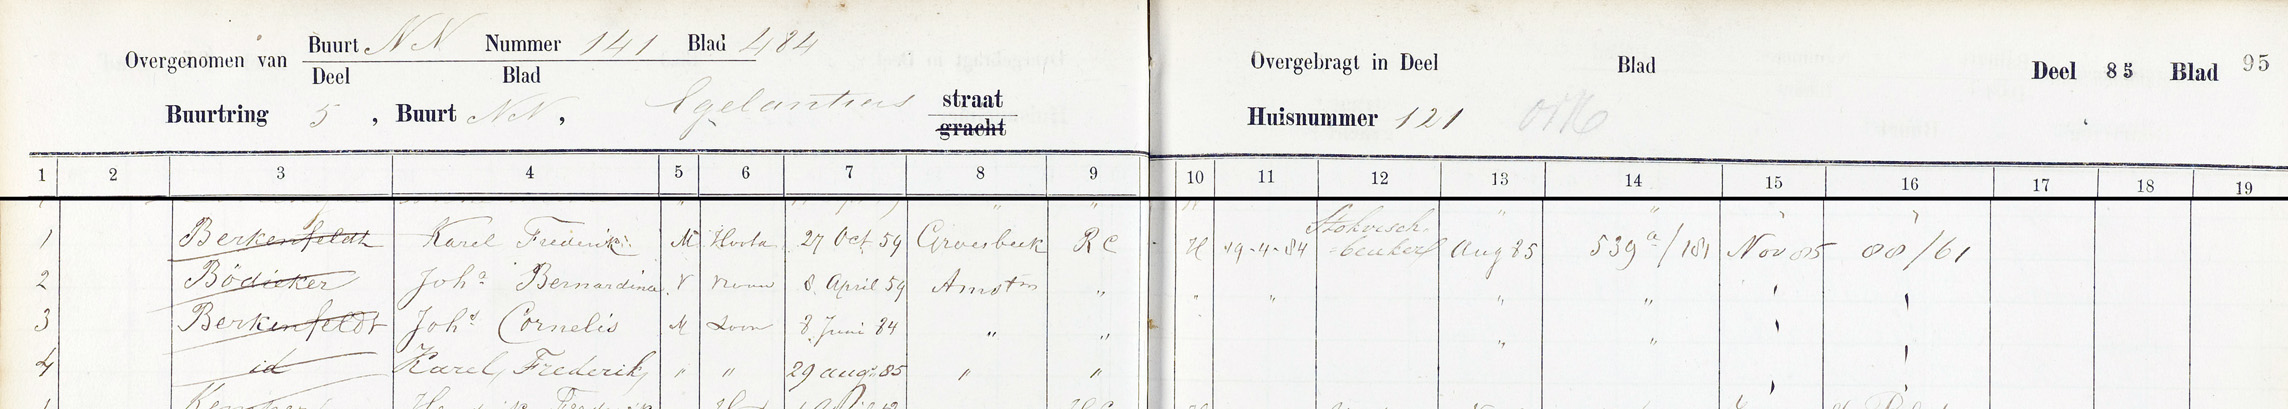 Overgenomen van Buurt NN Nummer 141 Blad 484
Deel Blad
Buurtring 5, Buurt NN, Egelantiers straat
gracht
Overgebragt in Deel Blad
Huisnummer 121
Deel 85 Blad 95
1 2 3 4 5 6 7 8 9 10 11 12 13 14 15 16 17 18 19
1 Berkenfeldt Karel Frederik M Hoofd 27 Oct 59 Groesbeek RC H 19-4-84 Stokvisch-
=beuker Aug 85 539a/181 Nov 85 88/61
2 Bödicker Joha Bernardina V Vrouw 8 April 59 Amstm " " " " "
3 Berkenfeldt Johs Cornelis M Zoon 8 Juni 84 " " " "
4 id Karel Frederik " " 29 aug 85 " "